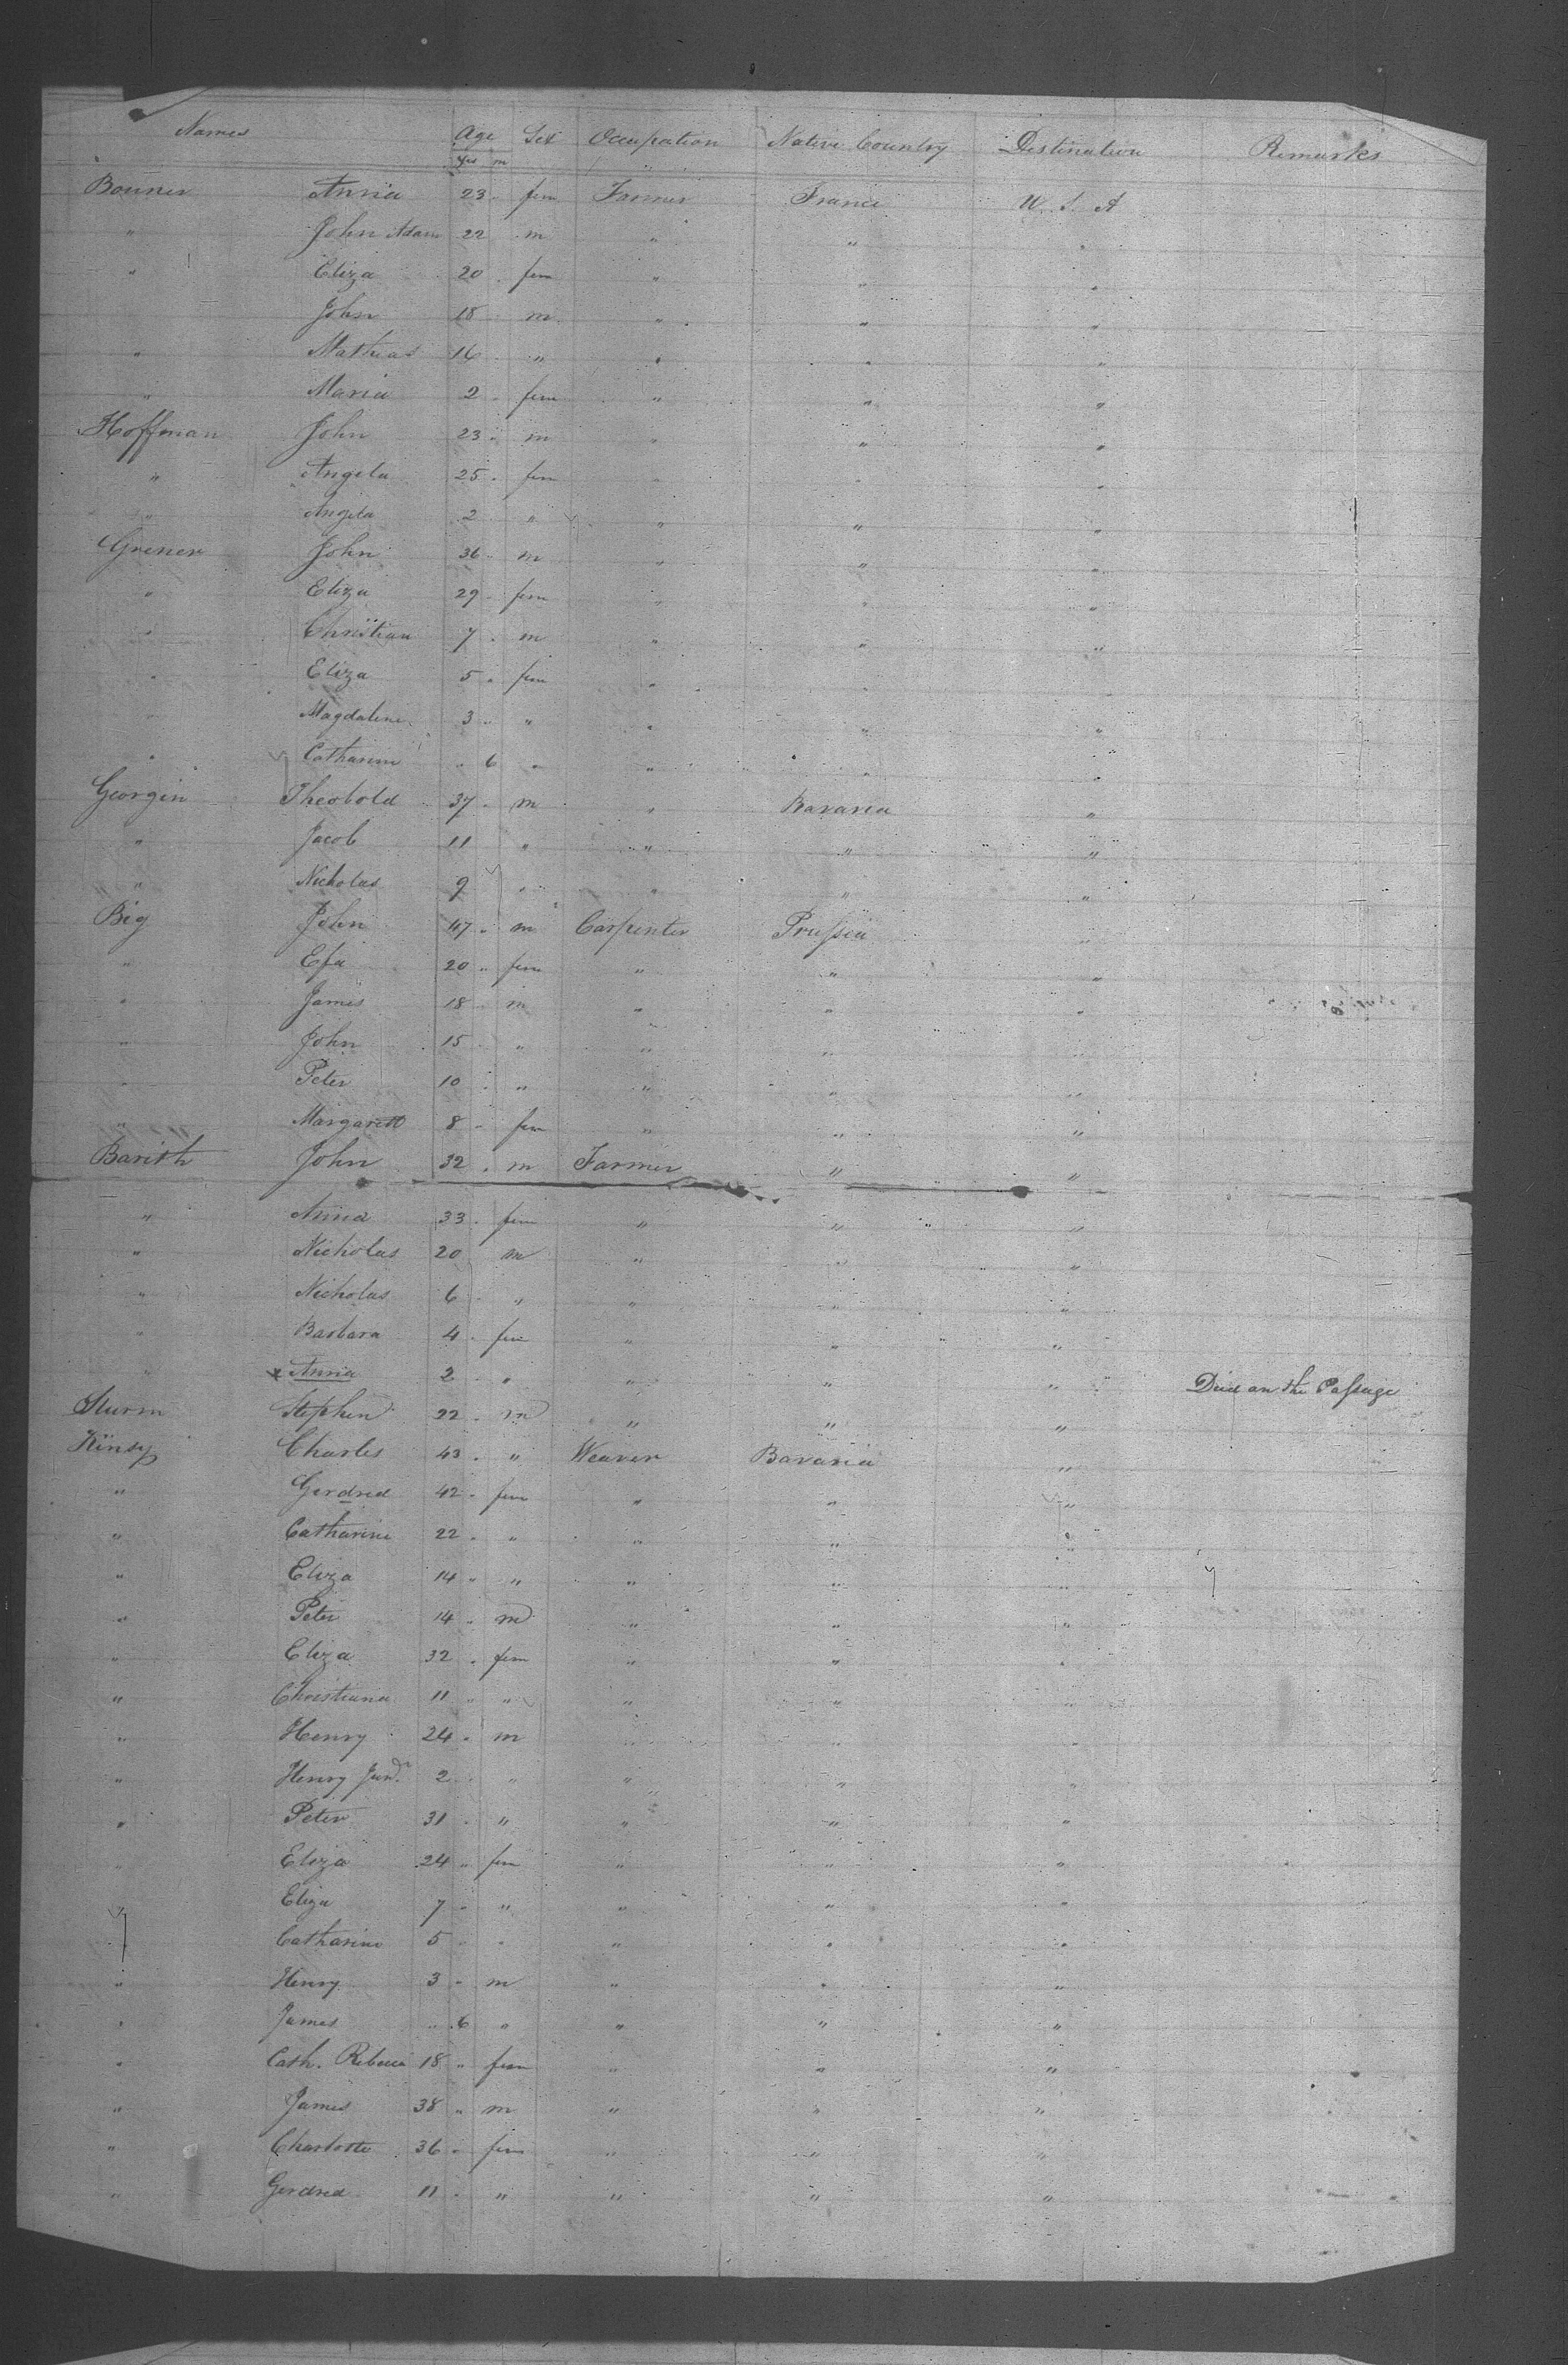 Names Age Sex Occupation Native Country Destination Remarks
yrs m
Bouner Anna 23 " fem Farmer France U. S. A
" John Adam 22 m " " "
" Eliza 20 " fem " " "
John 18 m " " "
" Mathias 16 " " " "
" Maria 2 " fem " " "
Hoffman John 23 " m " " "
" Angela 25 " fem " " "
" Angela 2 " " " "
Grener John 36 " m " " "
" Eliza 29 " fem " " "
" Christian 7 " m " " "
" Eliza 5 " fem " " "
" Magdalene 3 " " " " "
" Catharine " 6 " " " "
Georgin Theobold 37 " m " Bavaria "
" Jacob 11 " " " "
" Nicholas 9 " " " "
Big John 47 " m Carpenter Prussia "
" Efa 20 " fem " " "
" James 18 " m " " "
" John 15 " " " " "
" Peter 10 " " " " "
" Margarett 8 " fem " " "
Barith John 32 " m Farmer " "
" Anna 33 " fem " " "
" Nicholas 20 m " " "
" Nicholas 6 " " " " "
" Barbara 4 " fem " " "
" x Anna 2 " " " " " Died on the Passage
Sturm Stephen 22 " m " " "
Kinsy Charles 43 " " Weaver Bavaria "
" Gerdred 42 " fem " " "
" Catharine 22 " " " " "
" Eliza 14 " " " " "
" Peter 14 " m " " "
" Eliza 32 " fem " " "
" Christiana 11 " " " " "
" Henry 24 " m " " "
" Henry Jun. 2 " " " " "
" Peter 31 " " " " "
" Eliza 24 " fem " " "
Eliza 7 " " " " "
Catharine 5 " " " " "
" Henry 3 " m " " "
" James " 6 " " " "
" Cath. Rebecca 18 " fem " " "
" James 38 " m " " "
" Charlotte 36 " fem " " "
" Gerdred 11 " " " " "